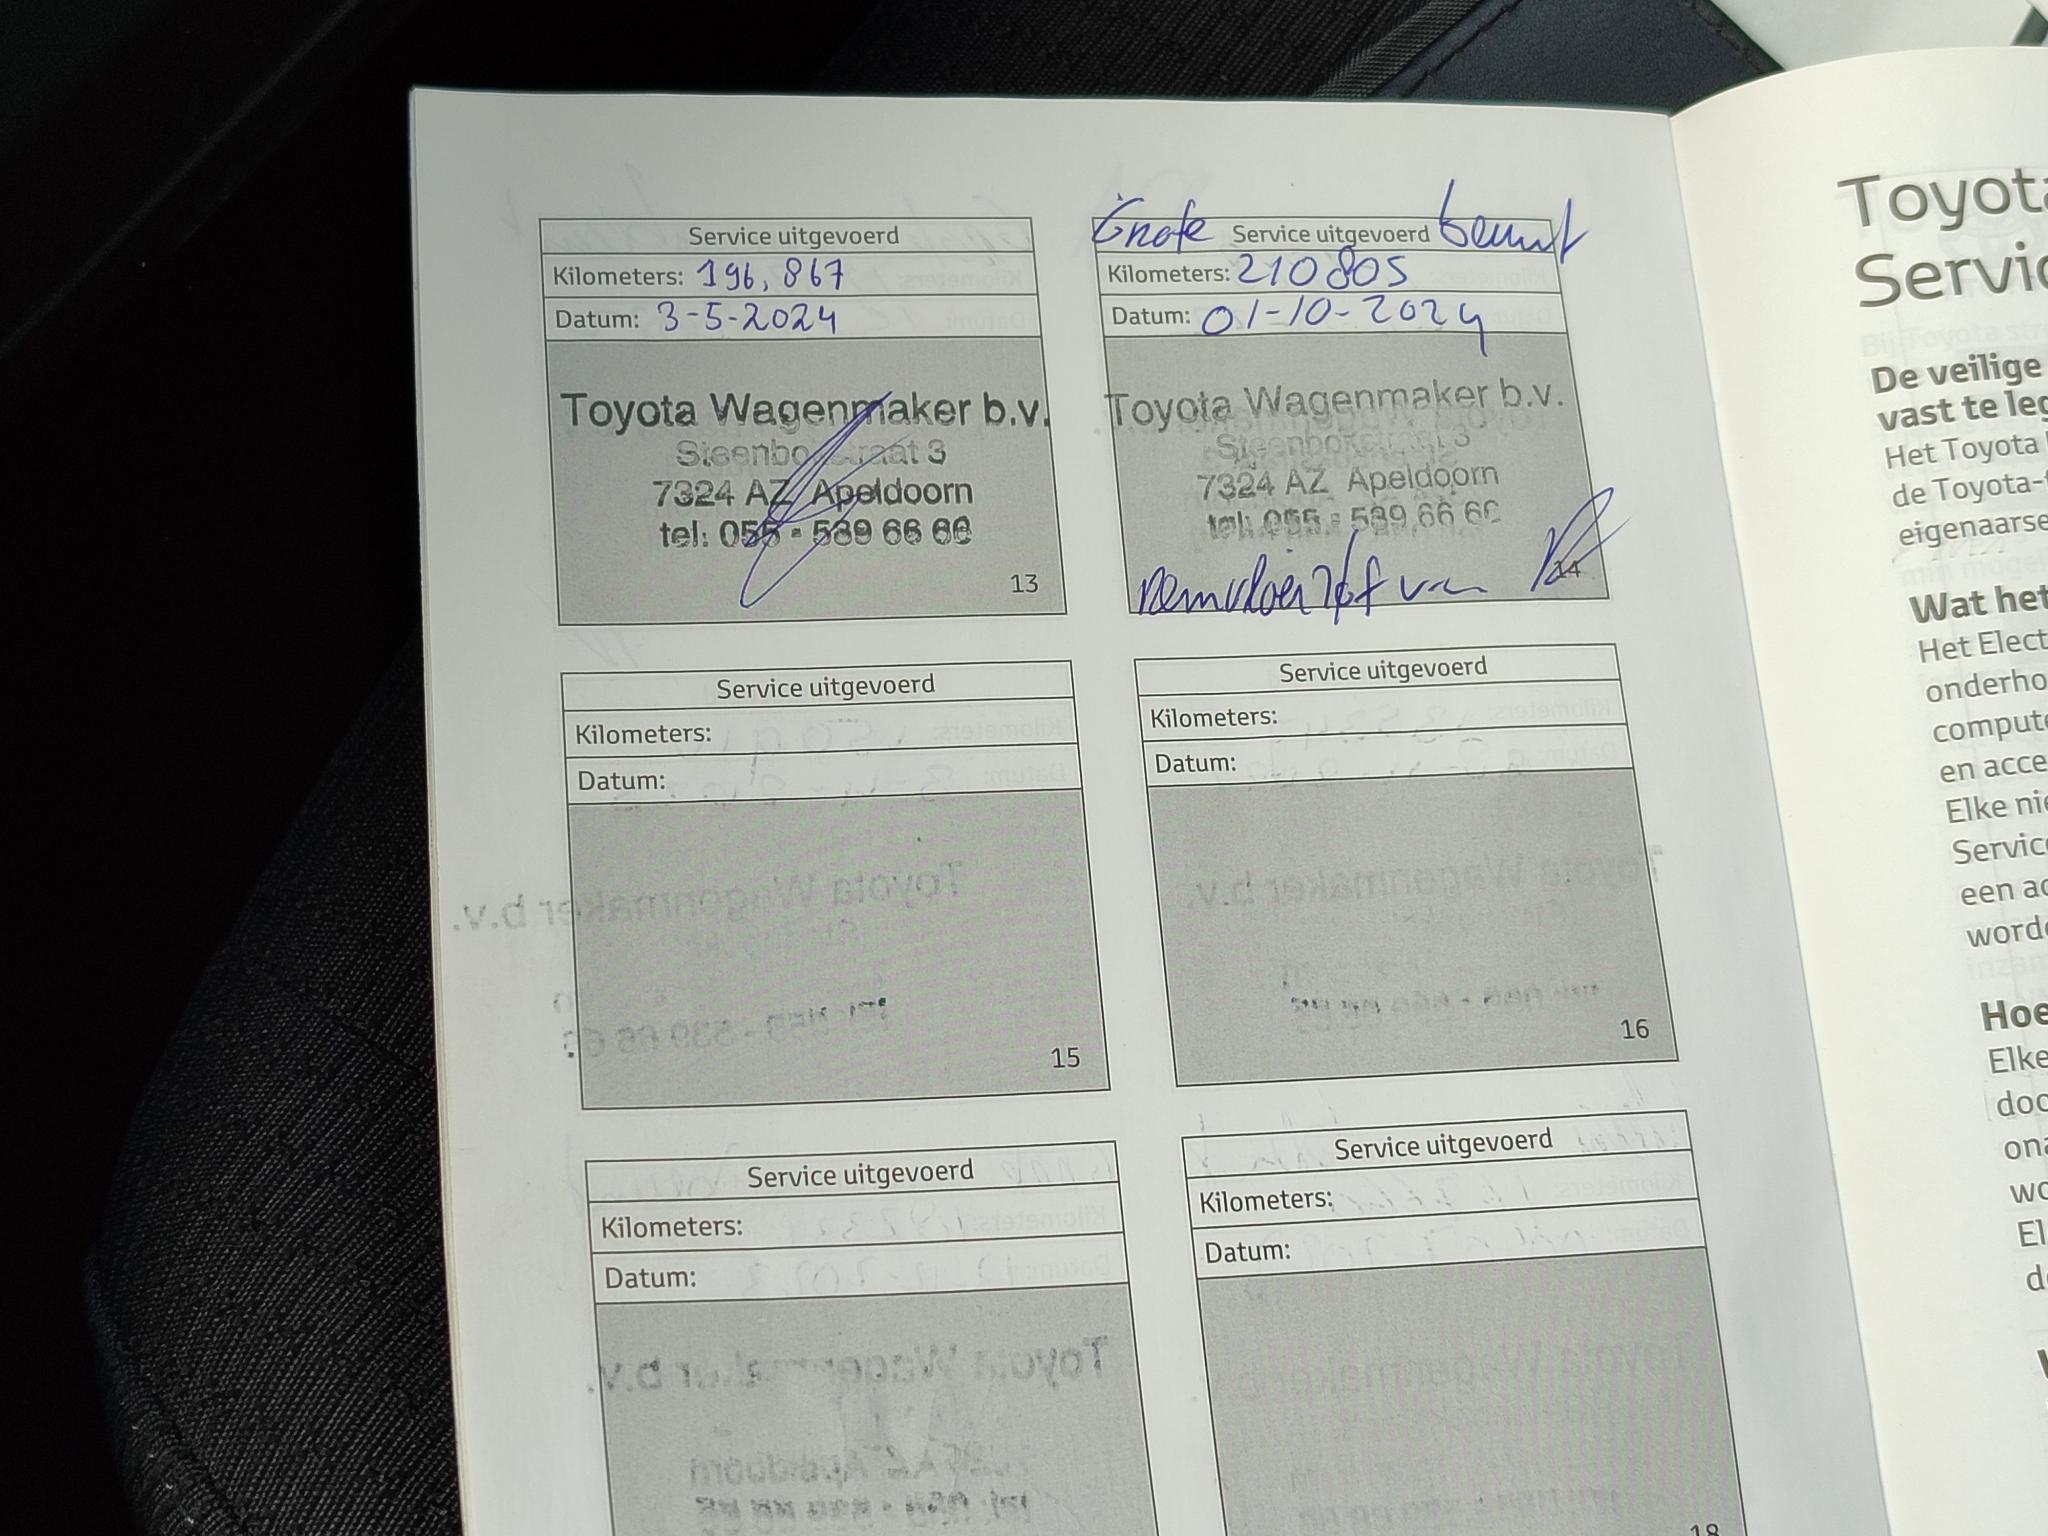 Service uitgevoerd
Kilometers: 196,867
Datum: 3-5-2024
Toyota Wagenmaker b.v.
Steenbokstraat 3
7324 AZ Apeldoorn
tel: 055 - 539 66 66
13
Grote Service uitgevoerd beurt
Kilometers: 210805
Datum: 01-10-2024
Toyota Wagenmaker b.v.
Steenbokstraat 3
7324 AZ Apeldoorn
tel: 055 - 539 66 66
Remvloeistof
14
Service uitgevoerd
Kilometers:
Datum:
15
Service uitgevoerd
Kilometers:
Datum:
16
Service uitgevoerd
Kilometers:
Datum:
Service uitgevoerd
Kilometers:
Datum:
18
Toyota
Servic
De veilige
vast te leg
Het Toyota
de Toyota-
eigenaarse
Wat het
Het Elect
onderho
compute
en acce
Elke nie
Service
een ac
worde
Hoe
Elke
doo
ona
wo
El
de